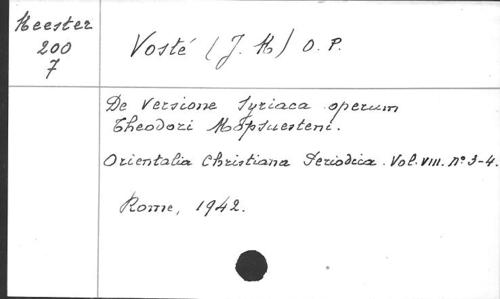 Meester
200
7
Vosté (J. M) O. P.
De Versione Syriaca operum
Theodori Mopsuesteni.
Orientalia Christiana Periodica. Vol. VIII. n° 3-4.
Rome, 1942.